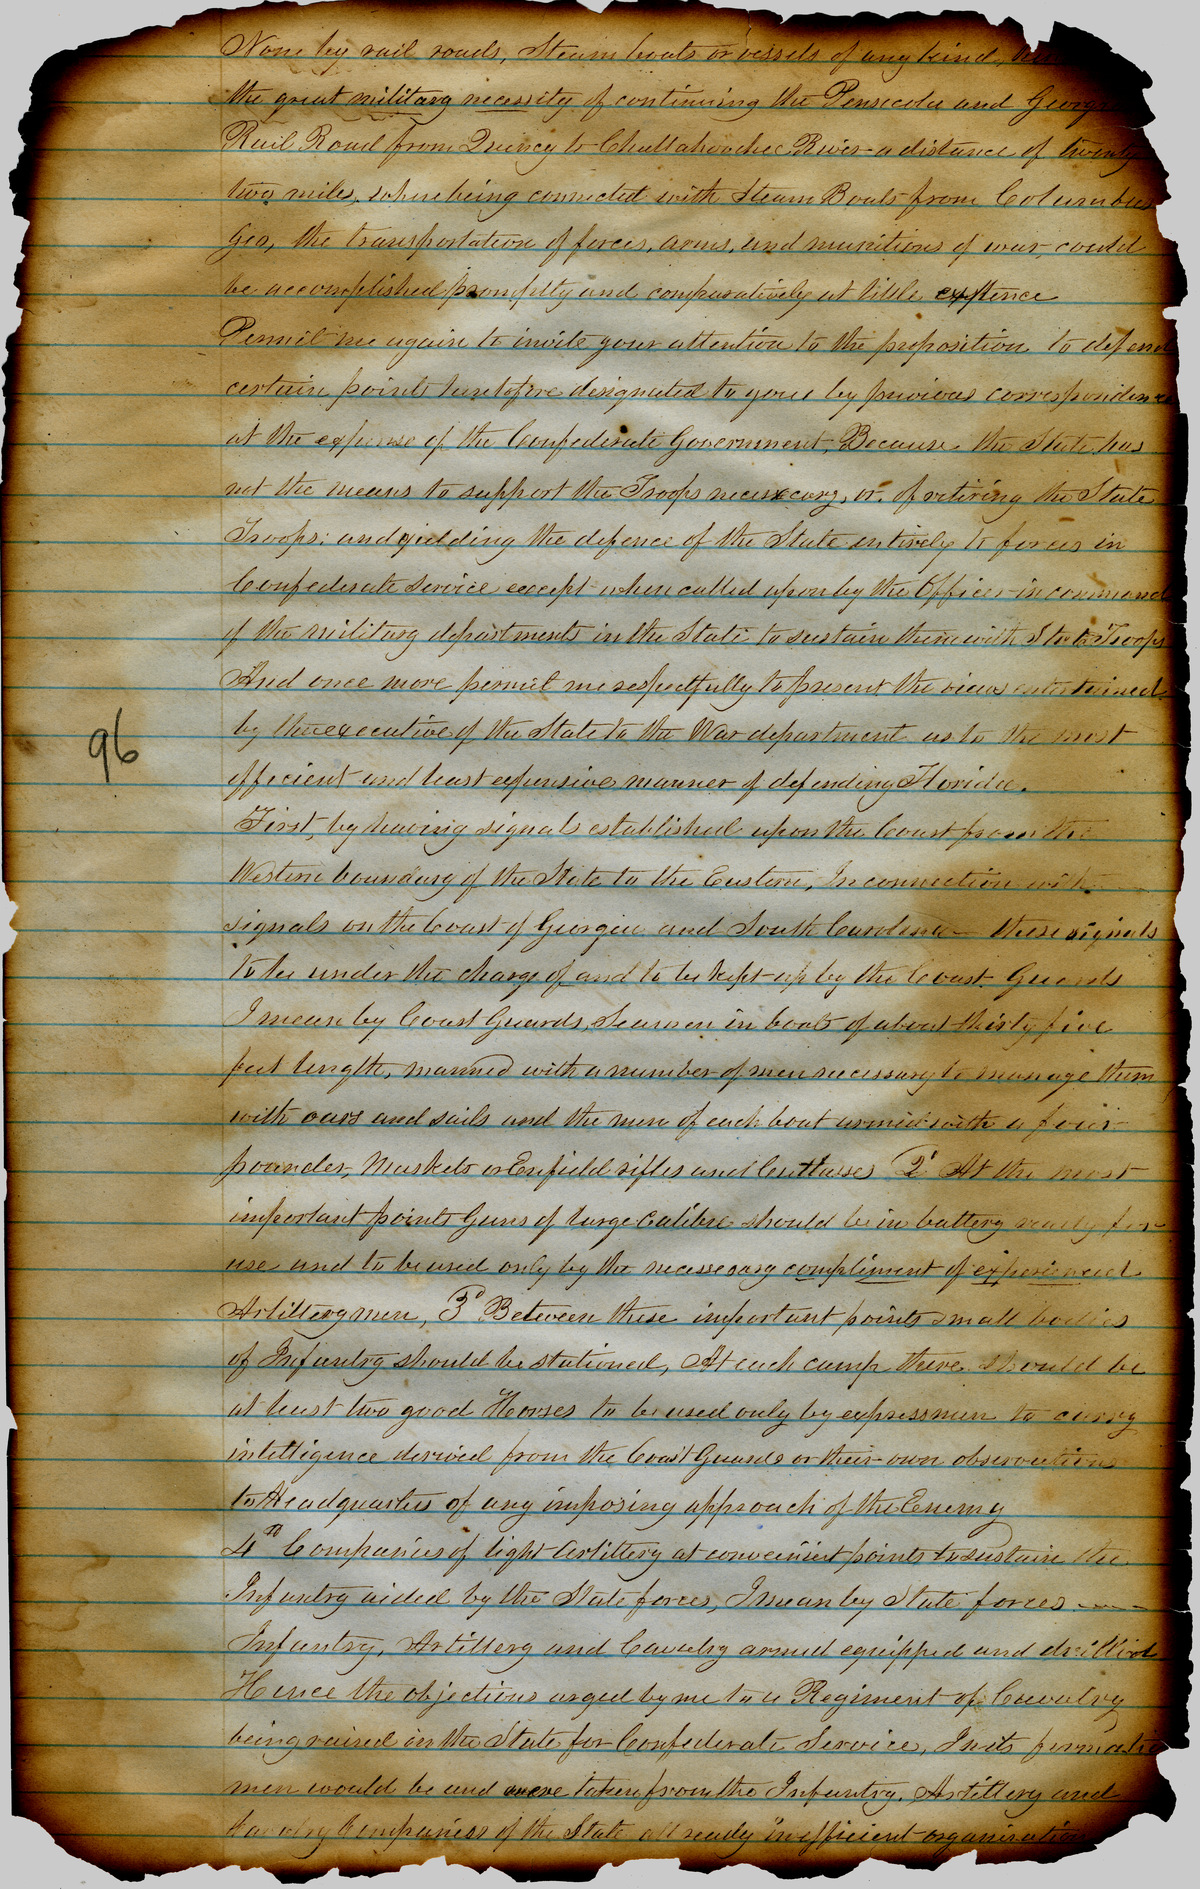 None by rail roads, Steam boats or vessels of any kind,
the great military necessity of continuing the Pensecola and Georg
Rail Road from Quincy to Chattahoochee River a distance of twenty
two miles, where being connected with Steam Boats from Columbus
Geo, the transportation of forces, arms, and munitions of war, could
be accomplished promptly and comparatively at little
Permit me again to invite your attention to the proposition to defend
certain points heretofore designated to you by previous correspondence
at the expense of the Confederate Government, Because the State has
not the means to support the Troops necessary, or, of retiring the State
Troops; and yielding the defence of the State entirely to forces in
Confederate Service except when called upon by the Officer in command
of the military departments in the State to sustain them with State Troops
And once more permit me respectfully to present the views entertained
by the executive of the State to the War department as to the most
efficient and least expensive manner of defending Florida.
First, by having signals established upon the Coast from the
Western boundary of the State to the Eastern, In connection with
signals on the Coast of Georgia and South Carolina — these signals
to be under the charge of and to be kept up by the Coast Guards
I mean by Coast Guards, Seamen in boats of about thirty five
feet length, manned with a number of men necessary to manage them
with oars and sails and the men of each boat armed with a four
pounder, Muskets or Enfield rifles and Cuttlasses 2d At the most
important points Guns of large Calibre should be in battery ready for
use and to be used only by the necessary compliment of experienced
Artillerymen, 3d Between these important points small bodies
of Infantry should be stationed, At each camp there should be
at least two good Horses to be used only by expressmen to carry
intelligence derived from the Coast Guards or their own observations
to Headquarters of any imposing approach of the Enemy
4th Companies of light Artillery at convenient points to sustain the
Infantry aided by the State forces, I mean by State forces
Infantry, Artillery and Cavalry armed equipped and drilled
Hence the objections urged by me to a Regiment of Cavalry
being raised in the State for Confederate Service, In its formatio
men would be and were taken from the Infantry, Artillery and
Cavalry Companies of the State allready inefficient organization
96